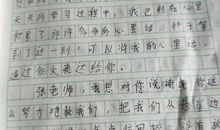 天天的学习过程中，我已经在心里
积累了许许多多的心里话，终于等
到了这一刻，可以将我的心里话，
通过作文来表达给你。
张老师，我想对你说谢谢你这
么努力地教我们，把我们从悬崖边